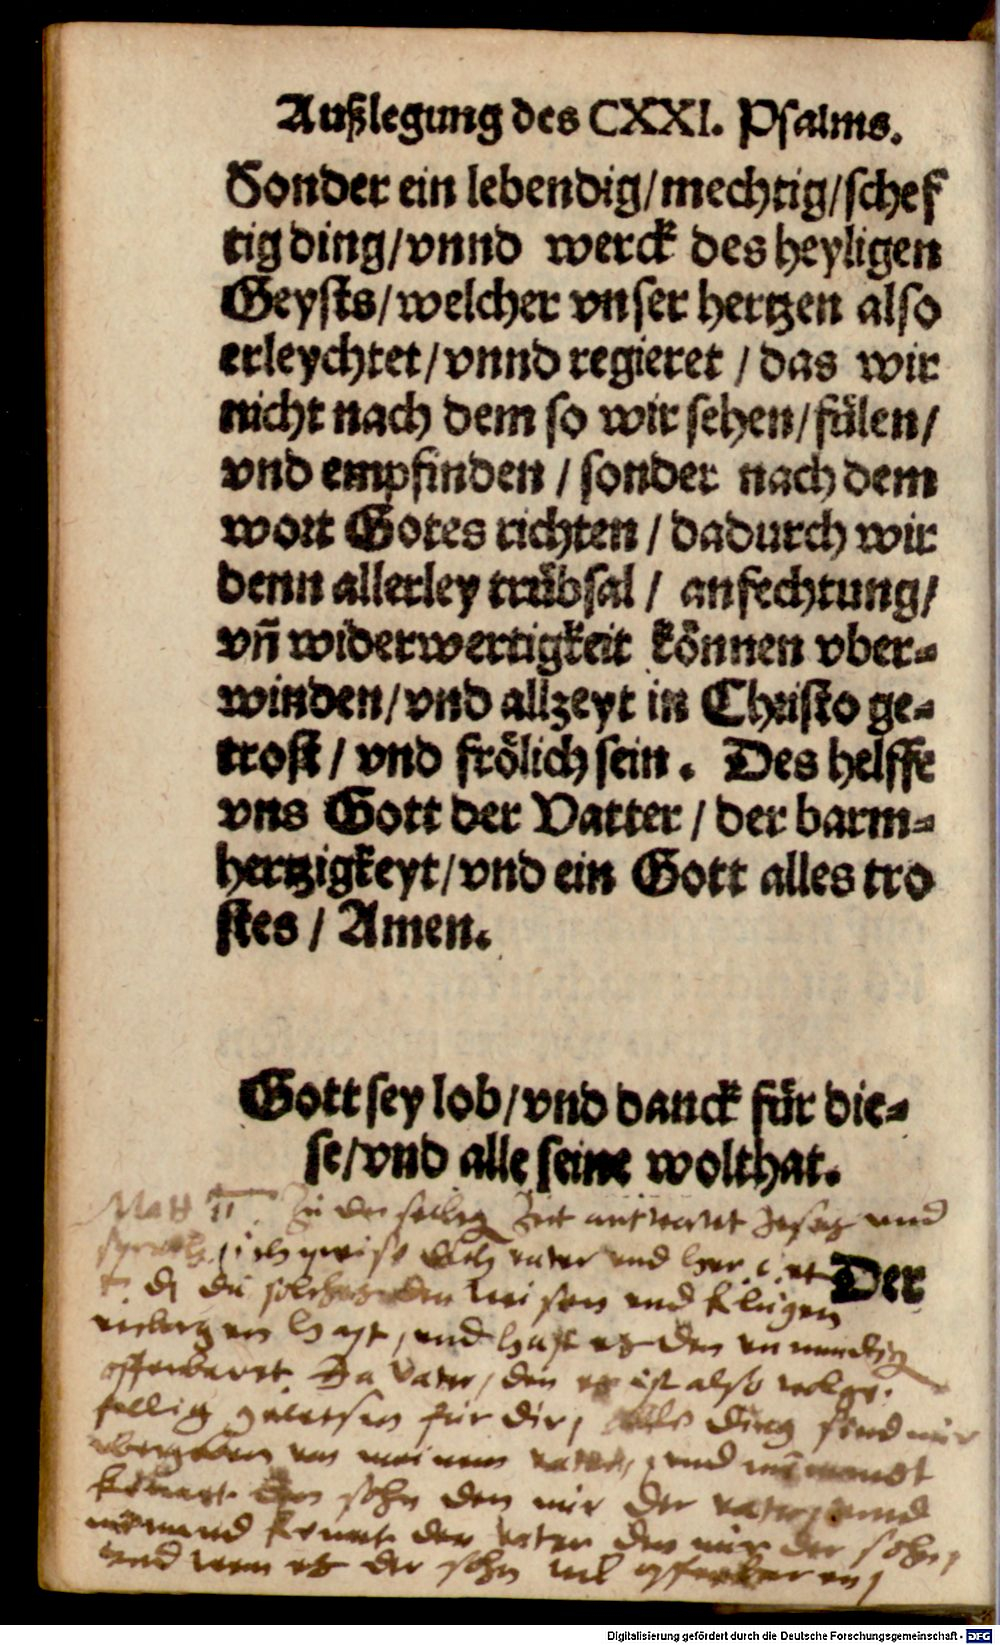 Außlegung des CXXI. Psalms.
Sonder ein lebendig/mechtig/schef
tig ding/vnnd werck des heyligen
Geysts/welcher vnser hertzen also
erleychtet/vnnd regieret/das wir
nicht nach dem so wir sehen/fülen/
vnd empfinden/sonder nach dem
wort Gotes richten/dadurch wir
denn allerley trübsal/anfechtung/
vñ widerwertigkeit können vber-
winden/vnd allzeyt in Christo ge-
trost/vnd frölich sein. Des helffe
vns Gott der Vatter/der barm-
hertzigkeyt/vnd ein Gott alles tro
stes/Amen.
Gott sey lob/vnd danck für die-
se/vnd alle seine wolthat.
Der
Matt 11 Zu der selbig Zeit antwortet Jesus und
sprach, ich preise dich vater und her
du solches den weisen und klugen
verborgen hast, und hast es den unmundig
offenbaret. Ja Vater, den es ist also
fellig gewesen für dir, alle ding sind mir
ubergeben von meinem vater, und niemandt
kennet den sohn den nur der vater, und
niemand kennet den vater den nur der sohn,
und wem es der sohn wil offenbaren,
Digitalisierung gefördert durch die Deutsche Forschungsgemeinschaft - DFG